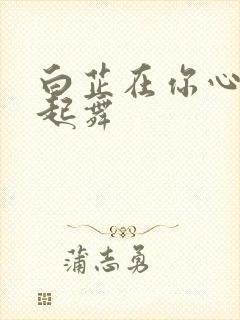 白芷在你心
起舞
蒲志勇